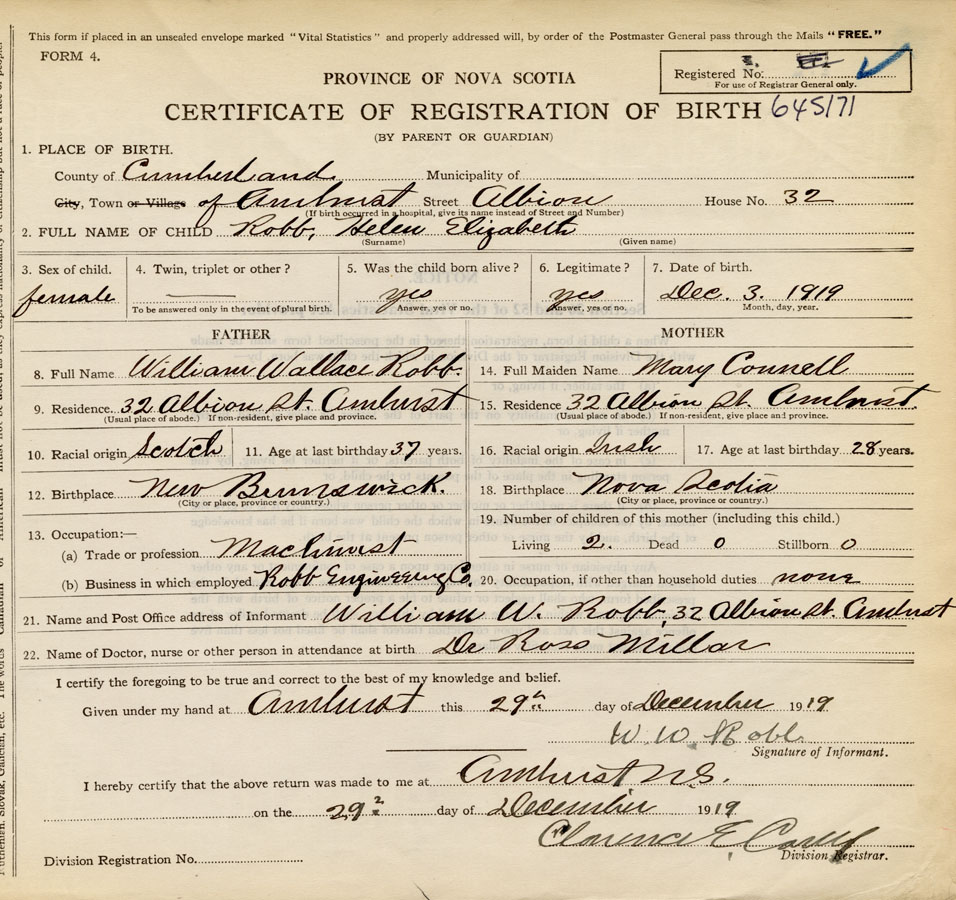 This form if placed in an unsealed envelope marked "Vital Statistics" and properly addressed will, by order of the Postmaster General pass through the Mails "FREE."
FORM 4.
Registered No:
For use of Registrar General only.
PROVINCE OF NOVA SCOTIA
CERTIFICATE OF REGISTRATION OF BIRTH 645171
(BY PARENT OR GUARDIAN)
1. PLACE OF BIRTH.
County of Cumberland. Municipality of
City, Town or Village of Amhurst Street Albion House No. 32
(If birth occurred in a hospital, give its name instead of Street and Number)
2. FULL NAME OF CHILD Robb, Helen Elizabeth
(Surname) (Given name)
3. Sex of child. 4. Twin, triplet or other? 5. Was the child born alive? 6. Legitimate? 7. Date of birth.
female yes yes Dec. 3. 1919
To be answered only in the event of plural birth. Answer, yes or no. Answer, yes or no. Month, day, year.
FATHER MOTHER
8. Full Name William Wallace Robb. 14. Full Maiden Name Mary Connell
9. Residence. 32 Albion St. Amhurst 15. Residence 32 Albion St. Amhurst.
(Usual place of abode.) If non-resident, give place and province. (Usual place of abode.) If non-resident, give place and province.
10. Racial origin Scotch 11. Age at last birthday 37 years. 16. Racial origin Irish 17. Age at last birthday 28 years.
12. Birthplace New Brunswick. 18. Birthplace Nova Scotia
(City or place, province or country.) (City or place, province or country.)
19. Number of children of this mother (including this child.)
13. Occupation:—
(a) Trade or profession Machinist Living 2. Dead 0 Stillborn 0
(b) Business in which employed Robb Engineering Co. 20. Occupation, if other than household duties none
21. Name and Post Office address of Informant William W. Robb, 32 Albion St. Amhurst
22. Name of Doctor, nurse or other person in attendance at birth Dr Ross Millar
I certify the foregoing to be true and correct to the best of my knowledge and belief.
Given under my hand at Amhurst this 29th day of December 1919
W. W. Robb.
Signature of Informant.
I hereby certify that the above return was made to me at Amhurst N.S.
on the 29 day of December 1919
Clarence E.
Division Registrar.
Division Registration No.